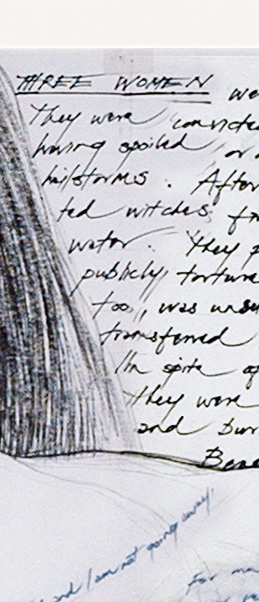 THREE WOMEN we
They were convicted
having spoiled or
hailstorms. After
ted witches, fr
water. They p
publicly torture
too, was unsu
transferred
In spite of
they were
and bur
Bene
and I am not going away.
For ma